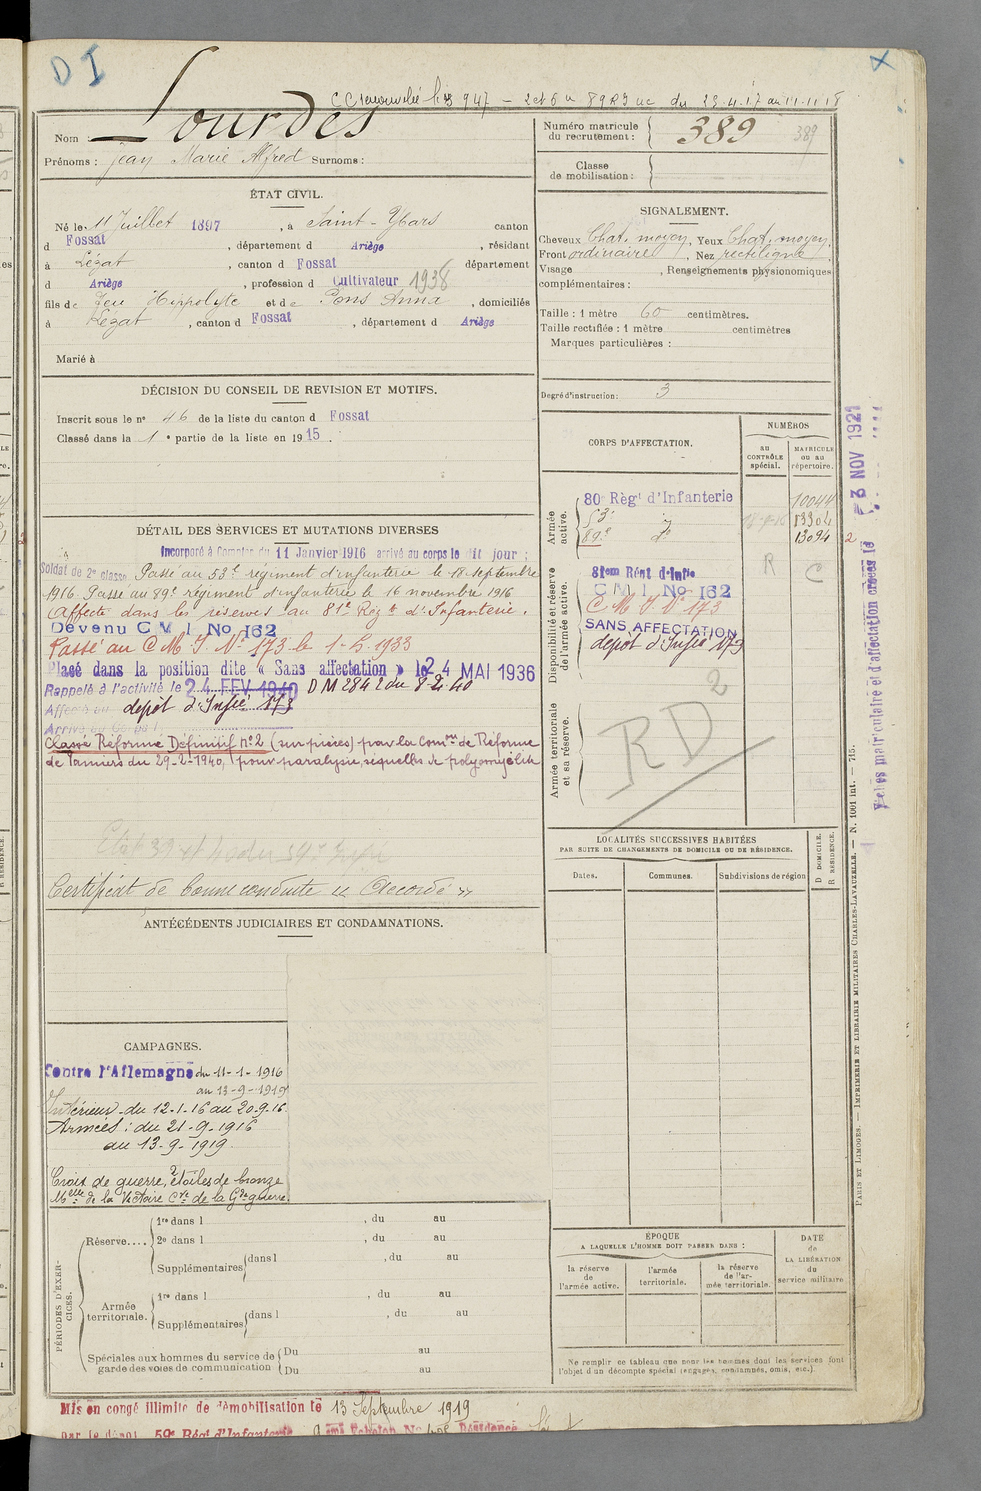 D I
Lourdes
Nom :
Prénoms : Jean Marie Alfred Surnoms :
ÉTAT CIVIL.
Né le 11 Juillet 1897, à Saint-Ybars canton
d Fossat, département d Ariège, résidant
à Lézat, canton d Fossat département
d Ariège, profession d Cultivateur 1938
fils de feu Hippolyte et de Pons Anna, domiciliés
à Lézat, canton d Fossat, département d Ariège
Marié à
DÉCISION DU CONSEIL DE REVISION ET MOTIFS.
Inscrit sous le no 46 de la liste du canton d Fossat
Classé dans la 1e partie de la liste en 1915.
DÉTAIL DES SERVICES ET MUTATIONS DIVERSES
Incorporé à Compter du 11 Janvier 1916 arrivé au corps le dit jour ;
Soldat de 2e classe Passé au 53e régiment d'infanterie le 18 septembre
1916. Passé au 89e régiment d'infanterie le 16 novembre 1916
Affecté dans les réserves au 81e Régt d'Infanterie.
Devenu C M I No 162
Passé au C M I No 173 le 1-5-1933
Placé dans la position dite « Sans affectation » le 24 MAI 1936
Rappelé à l'activité le 24 FEV 1940 DM 284 2 du 8-2-40
Affecté au dépôt d'Infie 173
Arrivé au Corps le
Classé Réforme Définitif no 2 (sur pièces) par la Comon de Réforme
de Pamiers du 29-2-1940, pour paralysie, séquelles de polyomyélite
Certificat de bonne conduite « Accordé »
ANTÉCÉDENTS JUDICIAIRES ET CONDAMNATIONS.
CAMPAGNES.
Contre l'Allemagne du 11-1-1916
au 13-9-1919
Intérieur du 12-1-16 au 20-9-16
Armées : du 21-9-1916
au 13-9-1919
Croix de guerre, 2 étoiles de bronze
Melle de la Victoire Cve de la Gde guerre.
PÉRIODES D'EXERCICES.
Réserve....
1re dans l , du au
2e dans l , du au
Supplémentaires dans l , du au
Armée territoriale.
1re dans l , du au
Supplémentaires dans l , du au
Spéciales aux hommes du service de garde des voies de communication
Du au
Du au
Mis en congé illimité de démobilisation le 13 Septembre 1919
par le dépôt 59e Régt d'Infanterie
Numéro matricule
du recrutement : 389 389
Classe
de mobilisation :
SIGNALEMENT.
Cheveux Chat. moyen, Yeux Chat. moyen,
Front ordinaire, Nez rectiligne
Visage , Renseignements physionomiques
complémentaires :
Taille : 1 mètre 60 centimètres.
Taille rectifiée : 1 mètre centimètres
Marques particulières :
Degré d'instruction : 3
CORPS D'AFFECTATION.
NUMÉROS
AU CONTRÔLE spécial.
MATRICULE ou au répertoire.
Armée active.
80e Régt d'Infanterie 10044
53e do 13302
89e do 13094 2
R C
Disponibilité et réserve de l'armée active.
81eme Régt d'Infie
C M I No 162
C M I No 173
SANS AFFECTATION
dépôt d'Infie 173
2
RD
Armée territoriale et sa réserve.
LOCALITÉS SUCCESSIVES HABITÉES
PAR SUITE DE CHANGEMENTS DE DOMICILE OU DE RÉSIDENCE.
D DOMICILE.
R RÉSIDENCE.
Dates. Communes. Subdivisions de région
ÉPOQUE
A LAQUELLE L'HOMME DOIT PASSER DANS :
la réserve de l'armée active.
l'armée territoriale.
la réserve de l'armée territoriale.
DATE de LA LIBÉRATION du service militaire
Ne remplir ce tableau que pour les hommes dont les services font
l'objet d'un décompte spécial (engagés, condamnés, omis, etc.).
PARIS ET LIMOGES. — IMPRIMERIE ET LIBRAIRIE MILITAIRES CHARLES-LAVAUZELLE. — N. 1001 int. — 715.
Fiches matriculaire et d'affectation créées le 3 NOV 1921